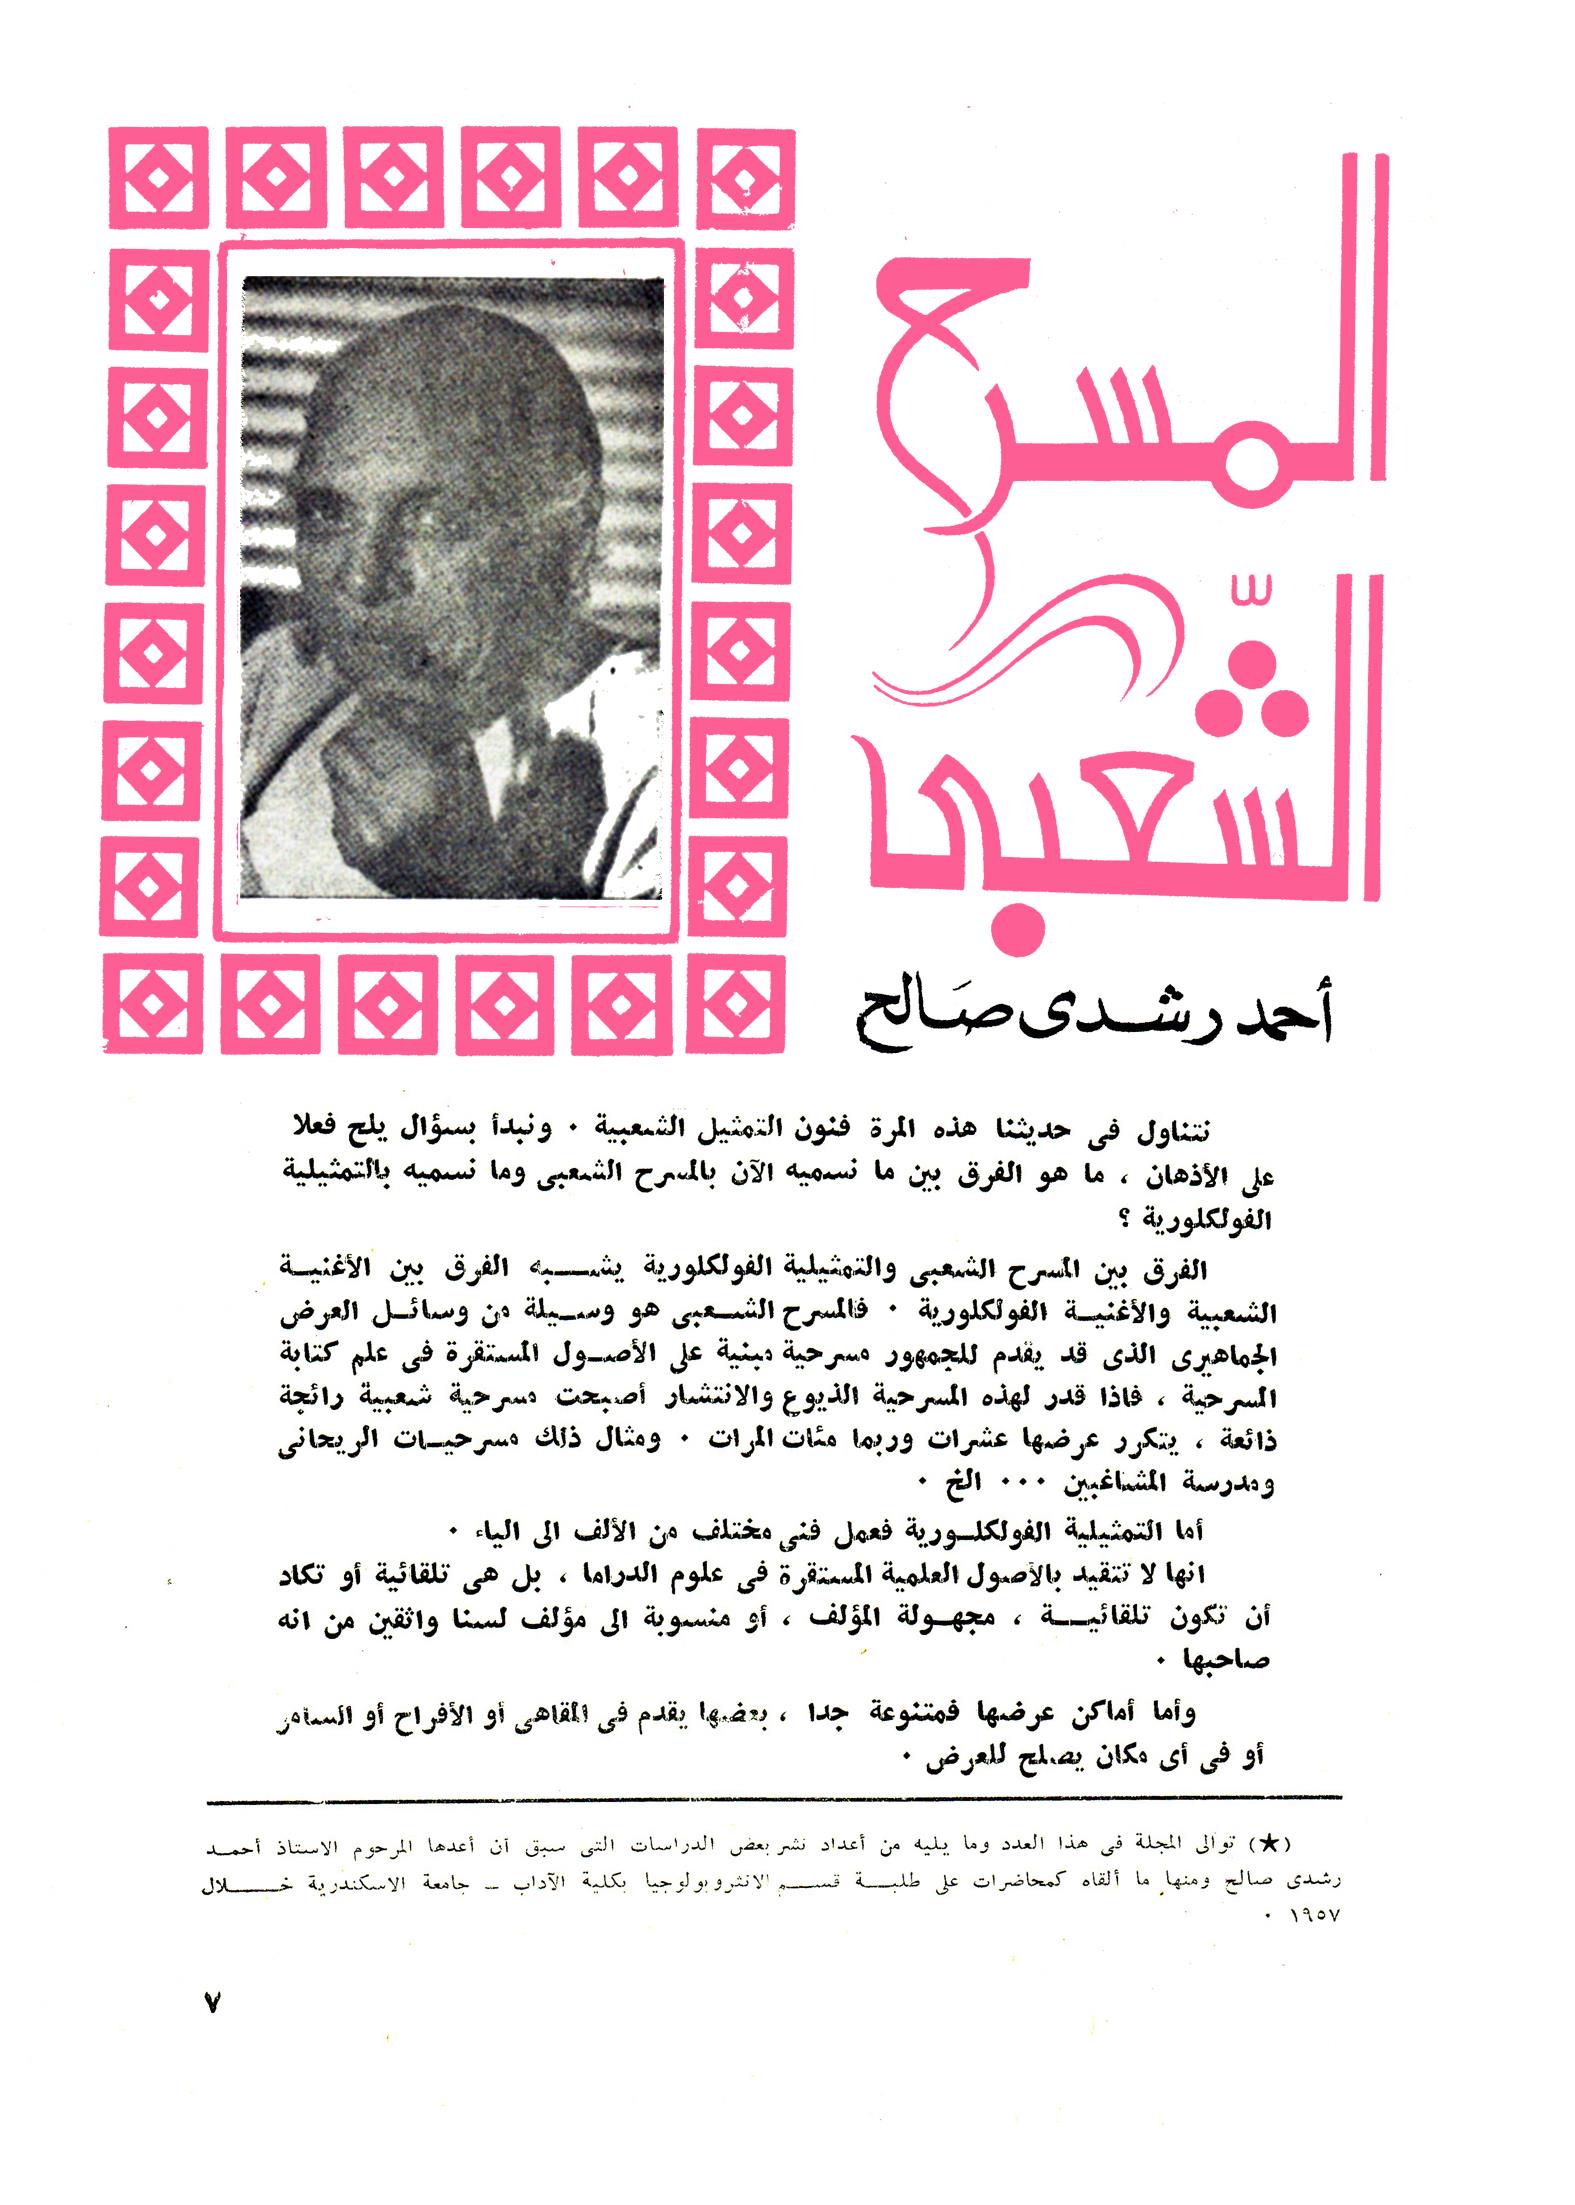 المسرح
الشّعبى
أحمد رشدى صَالح
نتناول فى حديثنا هذه المرة فنون التمثيل الشعبية ٠ ونبدأ بسؤال يلح فعلا
على الأذهان ، ما هو الفرق بين ما نسميه الآن بالمسرح الشعبى وما نسميه بالتمثيلية
الفولكلورية ؟
الفرق بين المسرح الشعبى والتمثيلية الفولكلورية يشـــبه الفرق بين الأغنيــة
الشعبية والأغنيــة الفولكلورية ٠ فالمسرح الشــعبى هو وســيلة من وسائــل العرض
الجماهيرى الذى قد يقدم للجمهور مسرحية مبنية على الأصــول المستقرة فى علم كتابة
المسرحية ، فاذا قدر لهذه المسرحية الذيوع والانتشار أصبحت مسرحية شعبية رائجة
ذائعة ، يتكرر عرضها عشرات وربما مئات المرات ٠ ومثال ذلك مسرحيــات الريحانى
ومدرسة المشاغبين ٠٠٠ الخ ٠
أما التمثيلية الفولكلــورية فعمل فنى مختلف من الألف الى الياء ٠
انها لا تتقيد بالأصول العلمية المستقرة فى علوم الدراما ، بل هى تلقائية أو تكاد
أن تكون تلقائيـــة ، مجهــولة المؤلف ، أو منسوبة الى مؤلف لسنا واثقين من انه
صاحبها ٠
وأما أماكن عرضها فمتنوعة جدا ، بعضها يقدم فى المقاهى أو الأفراح أو السامر
أو فى أى مكان يصلح للعرض ٠
(★) توالى المجلة فى هذا العدد وما يليه من أعداد نشر بعض الدراسات التى سبق أن أعدها المرحوم الاستاذ أحمــد
رشدى صالح ومنها ما ألقاه كمحاضرات على طلبـــة قســـم الانثروبولوجيا بكلية الآداب ــ جامعة الاسكندرية خــــلال
١٩٥٧ ٠
٧